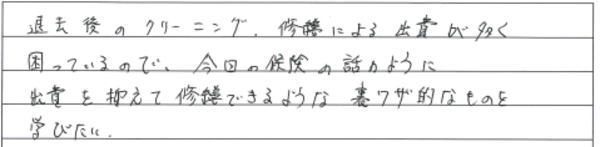 退去後のクリーニング、修繕による出費が多く
困っているので、今回の保険の話のように
出費を抑えて修繕できるような裏ワザ的なものを
学びたい。